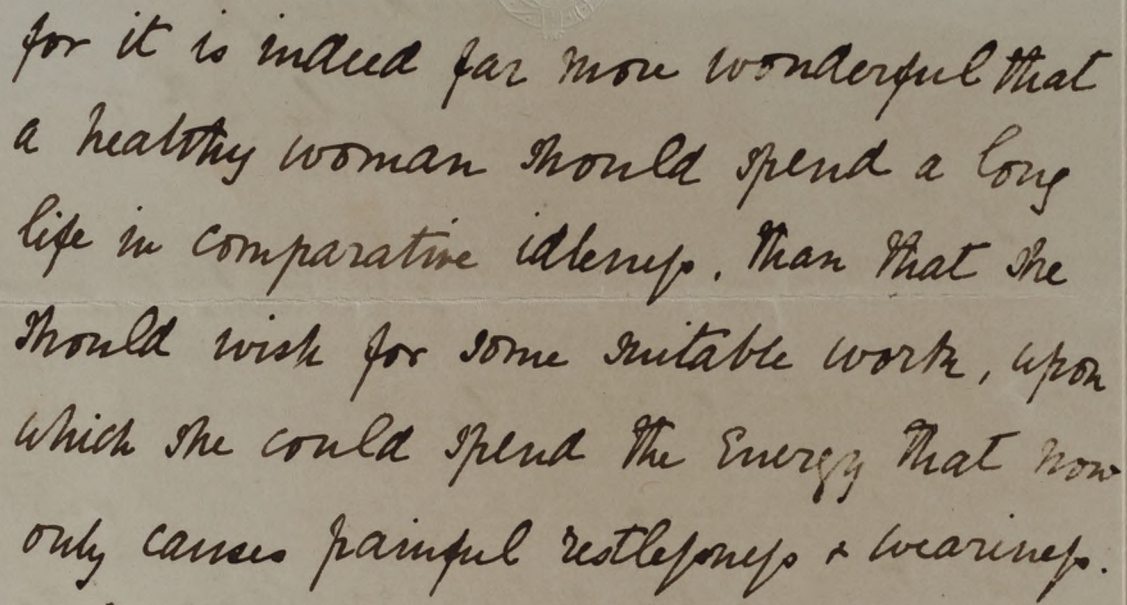 for it is indeed far more wonderful that
a healthy woman should spend a long
life in comparative idleness, than that she
should wish for some suitable work, upon
which she could spend the Energy that now
only causes painful restlessness & weariness.